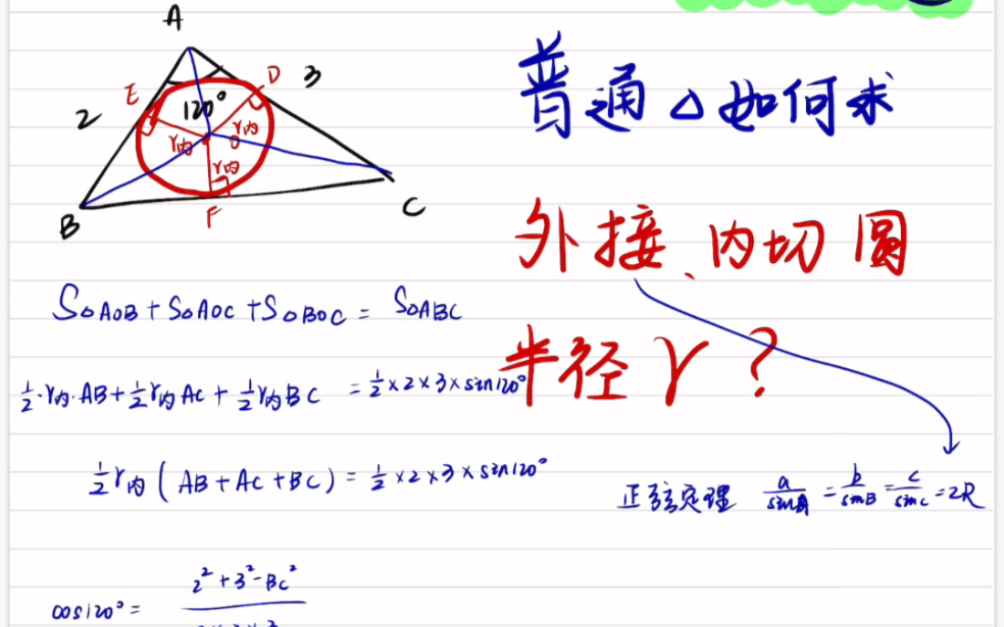 A
E
D
3
2
120°
r内
r内
O
r内
B
F
C
普通△如何求
外接、内切圆
半径r？
S△AOB+S△AOC+S△BOC=S△ABC
½·r内·AB+½r内AC+½r内BC=½×2×3×sin120°
½r内(AB+AC+BC)=½×2×3×sin120°
正弦定理 a/sinA=b/sinB=c/sinC=2R
cos120°= 2²+3²-BC²